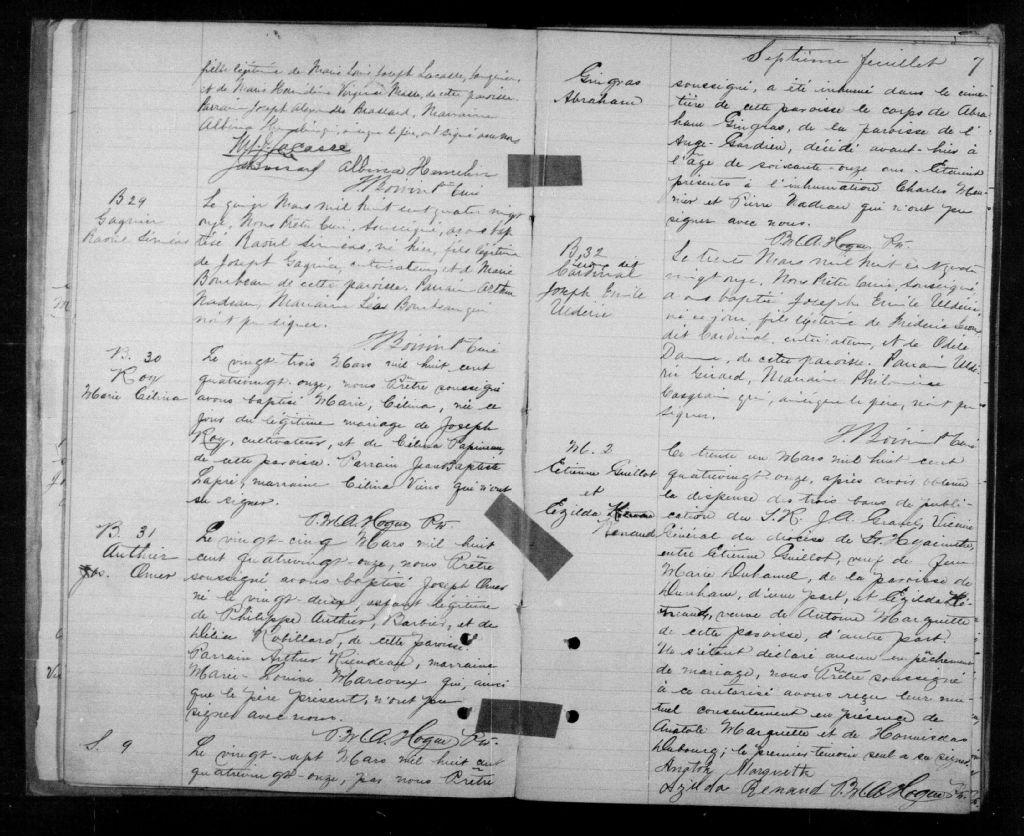 fille légitime de Marie Louis Joseph Lacasse,
et de Marie Virginie Masse, de cette paroisse.
Parrain Joseph Brassard, Marraine
Albina
M. J. Lacasse
Albina
J. Boivin Ptre Curé
B 29
Gagnier
Raoul Siméus
Le quinze Mars mil huit cent quatre vingt
onze, Nous Prêtre Curé, soussigné, avons bap
tisé Raoul Siméus, né hier, fils légitime
de Joseph Gagnier, cultivateur, et de Marie
de cette paroisse. Parrain Arthur
Nadeau, Marraine Léa
n'ont pu signer.
J. Boivin Ptre Curé
B. 30
Roy
Marie Célina
Le vingt trois Mars mil huit cent
quatrevingt onze, nous Prêtre soussigné
avons baptisé Marie, Célina, née ce
jour du légitime mariage de Joseph
Roy, cultivateur, et de Célina Papineau,
de cette paroisse. Parrain Jean Baptiste
Lapré, marraine Célina Viens qui n'ont
su signer.
P. M. A. Hogue Ptr.
B. 31
Authier
Jos. Omer
Le vingt-cinq Mars mil huit
cent quatrevingt onze, nous Prêtre
soussigné avons baptisé Joseph Omer
né le vingt-deux, enfant légitime
de Philippe Authier, Barbier, et de
Délia Robillard, de cette paroisse
Parrain Arthur Riendeau, marraine
Marie-Louise Marcoux qui, ainsi
que le père présent, n'ont pu
signer avec nous.
P. M. A. Hogue Ptr.
S. 9
Le vingt-sept Mars mil huit cent
quatrevingt-onze, par nous Prêtre
Septième feuillet 7
Gingras
Abraham
soussigné, a été inhumé dans le cime-
tière de cette paroisse le corps de Abra
ham Gingras, de la paroisse de l'
Ange-Gardien, décédé avant-hier à
l'âge de soixante-onze ans. Etaient
présents à l'inhumation Charles
et Pierre Nadeau qui n'ont pu
signer avec nous.
P. M. A. Hogue Ptr.
B. 32
Giroux dit
Cardinal
Joseph Emile
Uldéric
Le trente Mars mil huit cent quatre
vingt onze, Nous Prêtre Curé, soussigné
avons baptisé Joseph Emile Uldéric,
né ce jour, fils légitime de Frédéric Giroux
dit Cardinal, cultivateur, et de Odile
de cette paroisse. Parrain Uldé
ric Girard, Marraine Philomène
qui, ainsi que le père, n'ont pu
signer.
J. Boivin Ptre Curé
M. 2
Etienne Guillot
et
Exzilda
Renaud
Le trente un Mars mil huit cent
quatrevingt onze, après avoir obtenu
la dispense des trois bans de publi-
cation du T. R. J. A. Gravel, Vicaire
Général du diocèse de St. Hyacinthe,
entre Etienne Guillot, veuf de feue
Marie Duhamel, de la paroisse de
Dunham, d'une part, et Exzilda Re-
naud, veuve de Antoine Marquette
de cette paroisse, d'autre part.
Ne s'étant déclaré aucun empêchement
de mariage, nous Prêtre soussigné
à ce autorisé avons reçu leur mu-
tuel consentement en présence de
Anatole Marquette et de Honmisdas
Dubourg; le premier témoin seul a su signer.
Anatole Marquette
Exzilda Renaud P. M. A. Hogue Ptr.